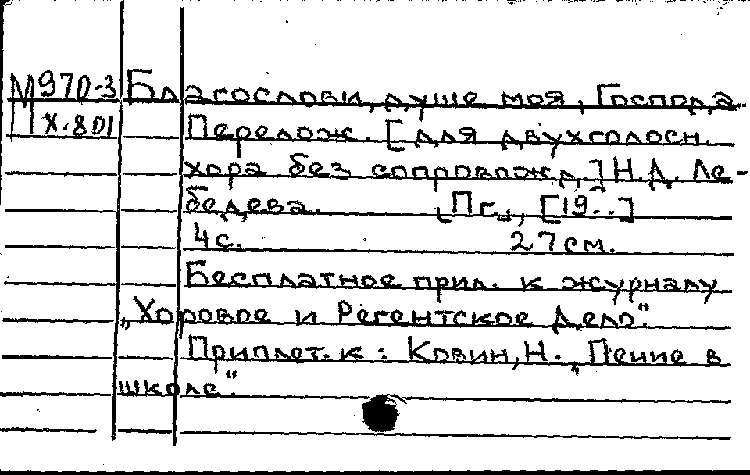 М970-3 Благослови, душе моя, Господа.
М X-801 Перелож. [для двухголосн.
хора без сопровожд.] Н.Д. Ле-
бедева. [Пг.], [19..]
4с. 27см.
Бесплатное прил. к журналу
"Хоровое и Регентское Дело".
Приплет. к: Ковин, Н. "Пение в
школе"